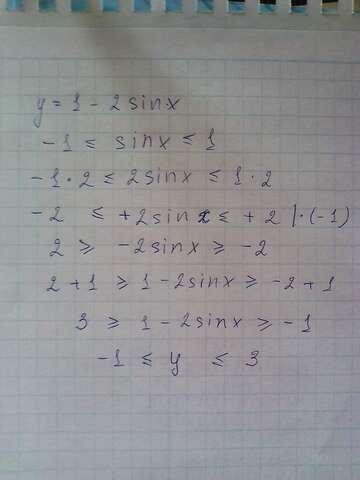 y = 1 - 2 sinx
-1 ≤ sinx ≤ 1
-1 · 2 ≤ 2sinx ≤ 1 · 2
-2 ≤ +2sinx ≤ +2 | · (-1)
2 ≥ -2sinx ≥ -2
2 + 1 ≥ 1 - 2sinx ≥ -2 + 1
3 ≥ 1 - 2sinx ≥ -1
-1 ≤ y ≤ 3